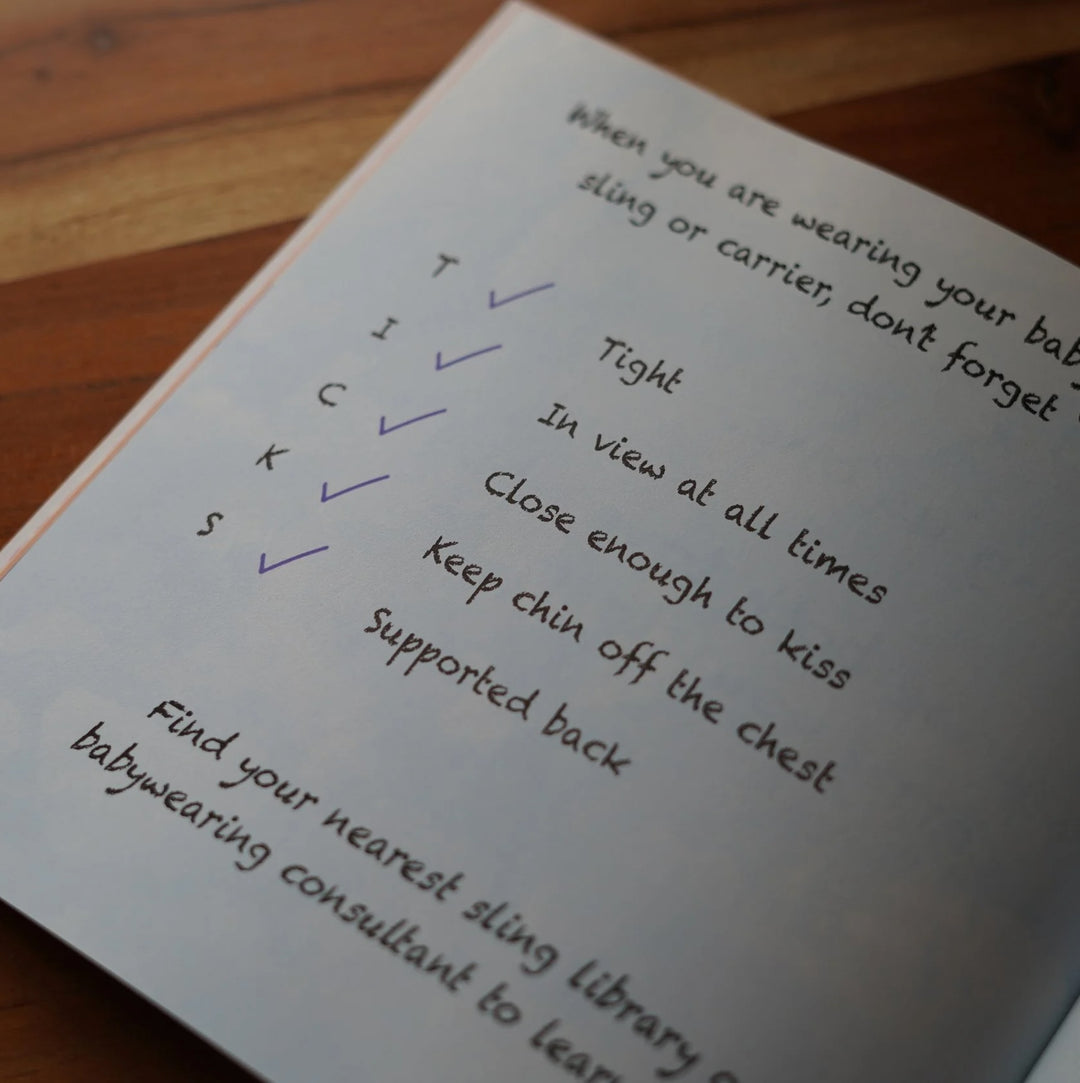 When you are wearing your
sling or carrier, don't forget
T ✓ Tight
I ✓ In view at all times
C ✓ Close enough to kiss
K ✓ Keep chin off the chest
S ✓ Supported back
Find your nearest sling library
babywearing consultant to